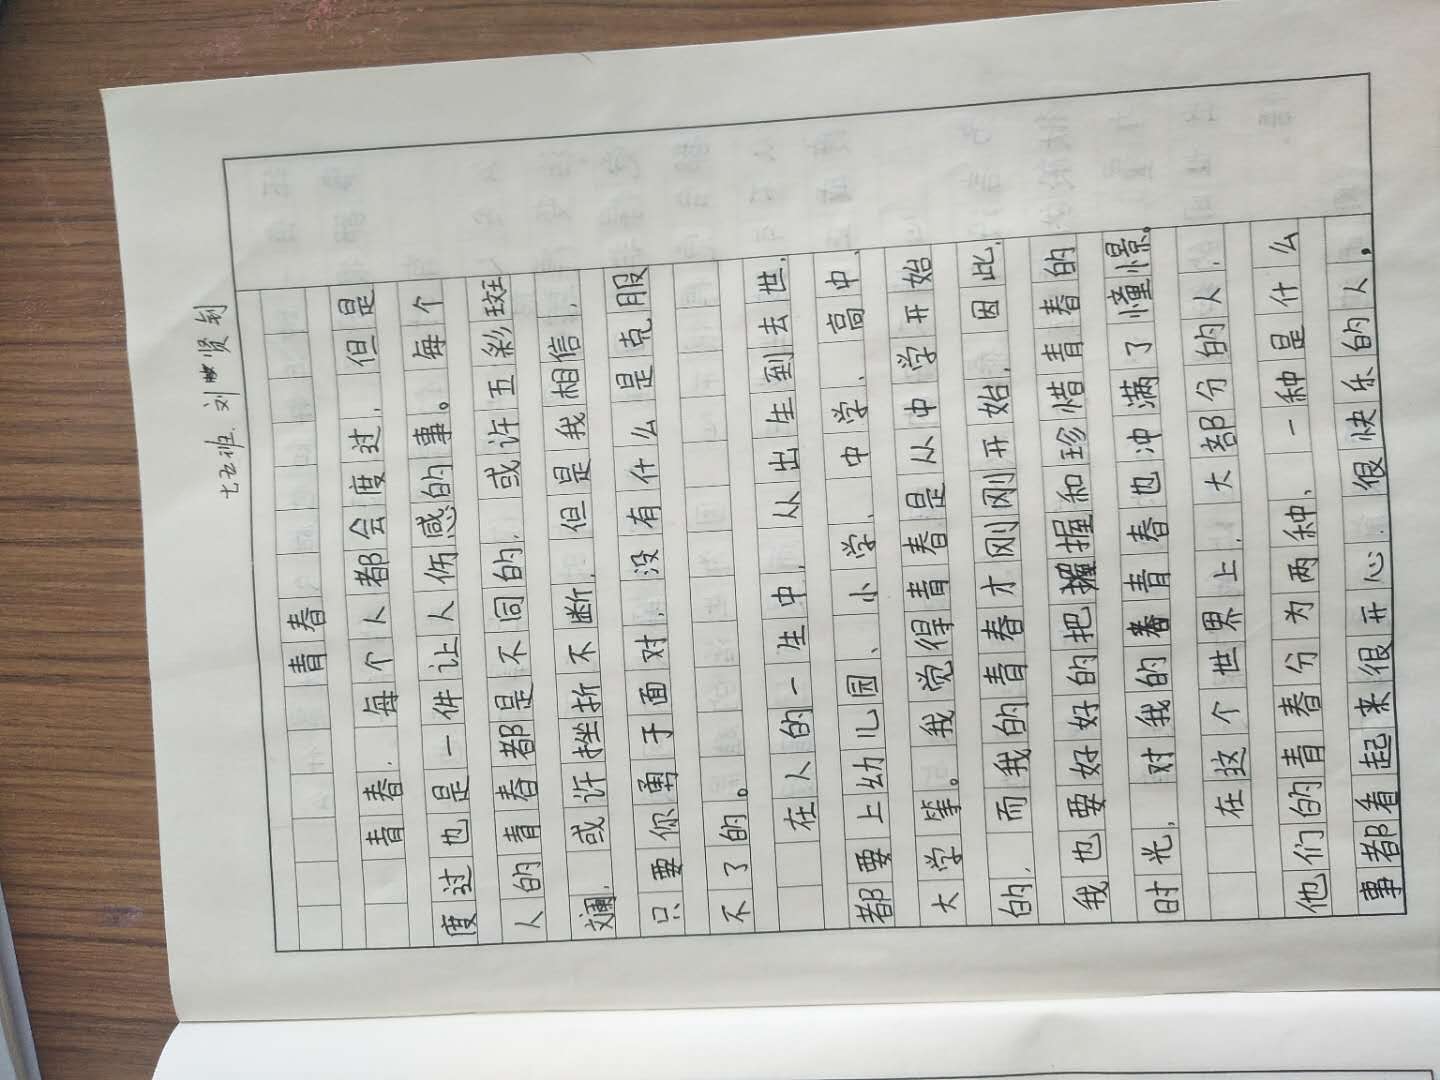 七五班 刘贤钊
青春
青春，每个人都会度过，但是
度过也是一件让人伤感的事。每个
人的青春都是不同的，或许五彩斑
斓，或许挫折不断，但是我相信，
只要你勇于面对，没有什么是克服
不了的。
在人的一生中，从出生到去世，
都要上幼儿园、小学、中学、高中、
大学等。我觉得青春是从中学开始
的，而我的青春才刚刚开始，因此，
我也要好好的把握和珍惜青春的
时光，对我的青春也冲满了憧憬。
在这个世界上，大部分的人，
他们的青春分为两种，一种是什么
事都看起来很开心，很快乐的人，